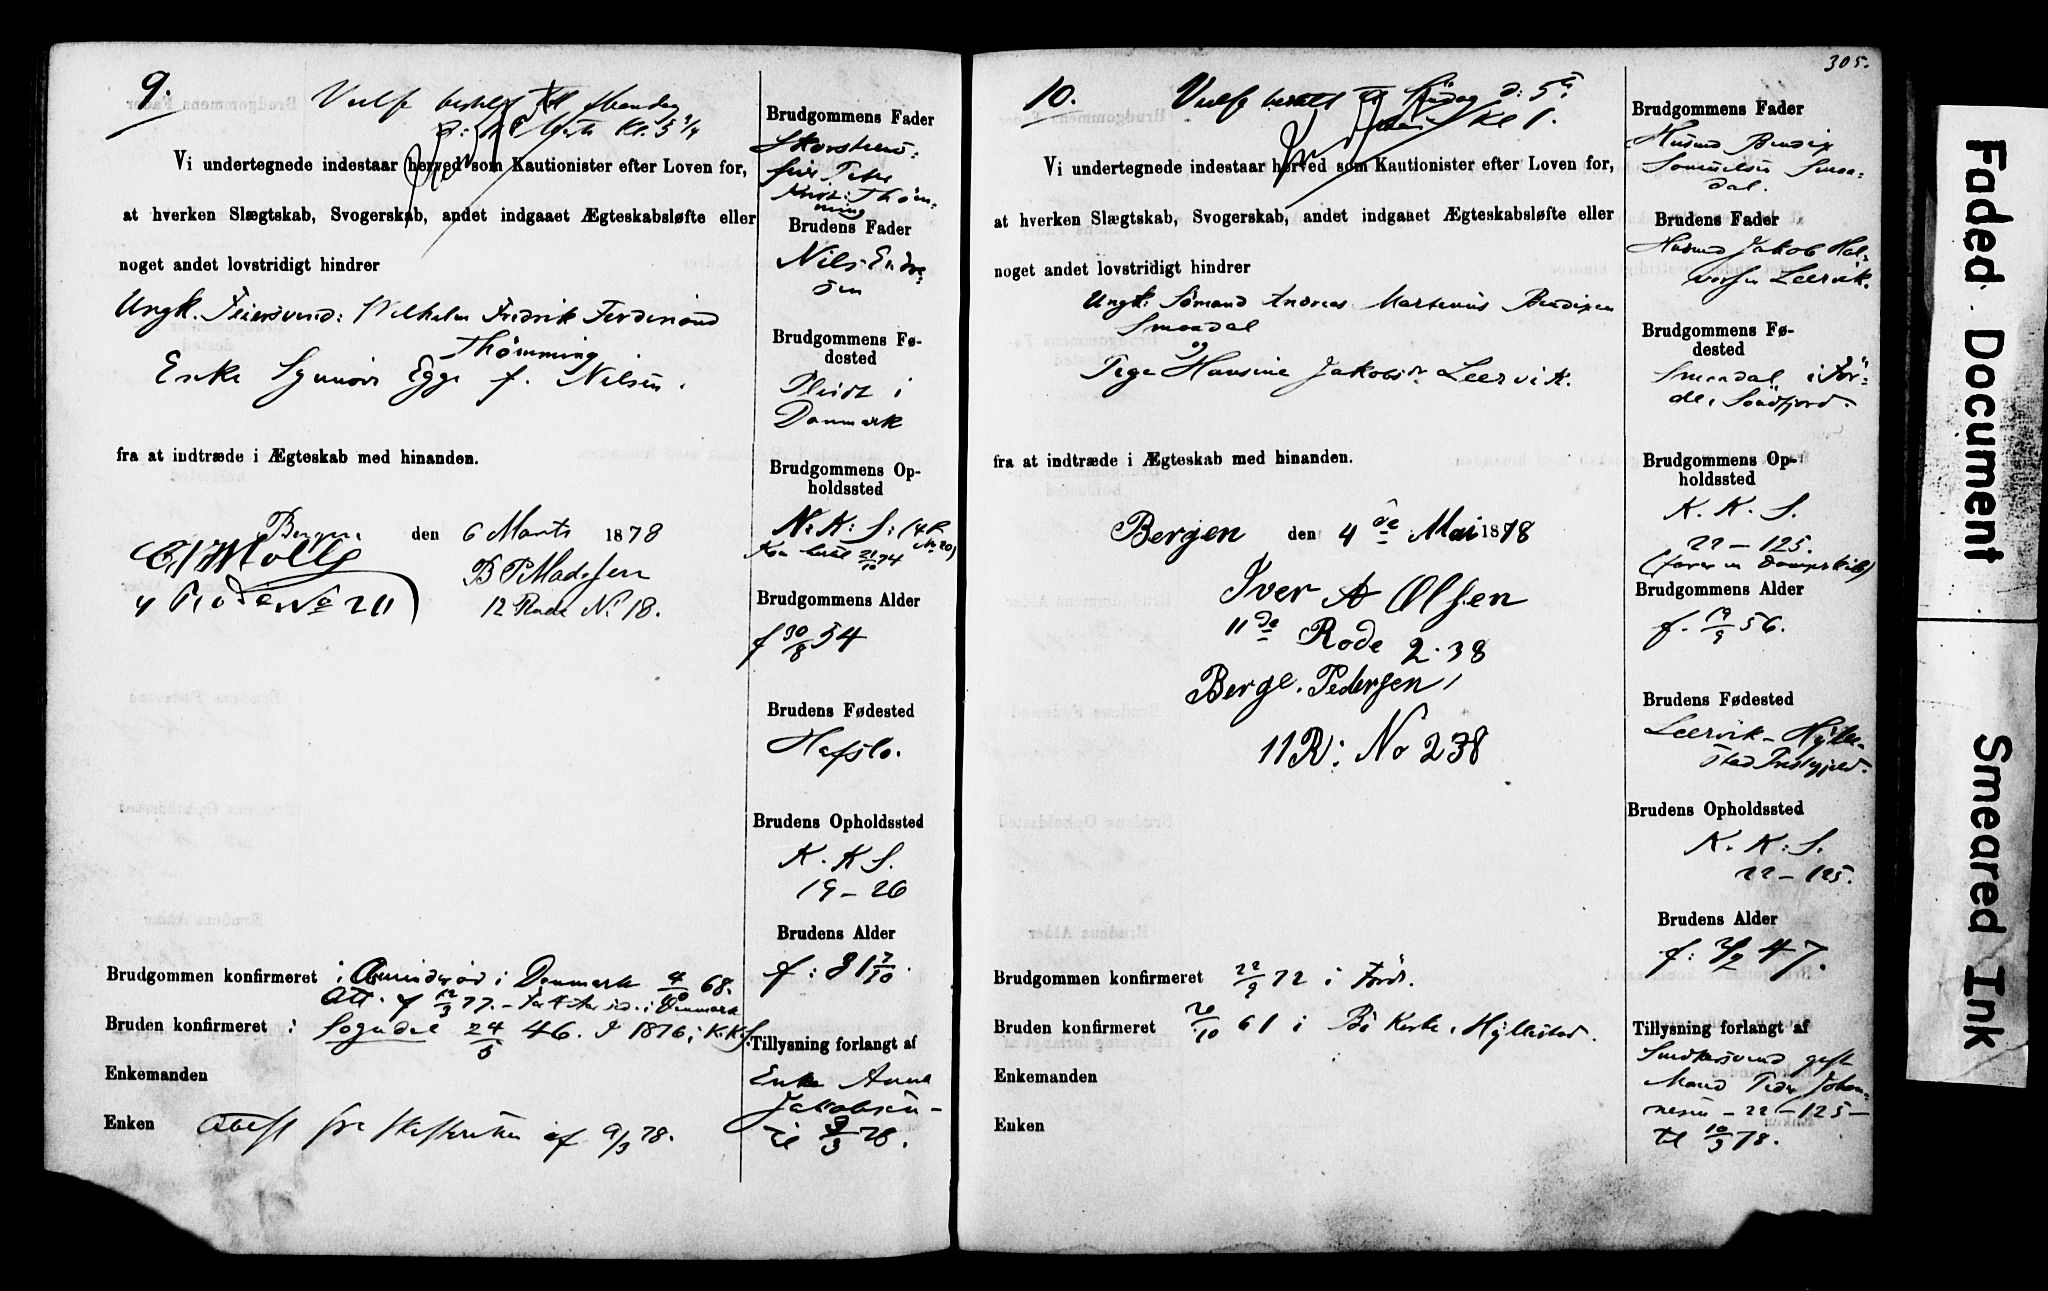 9.
Vielse
Kl. 5 3/4
Vi undertegnede indestaar herved som Kautionister efter Loven for,
at hverken Slægtskab, Svogerskab, andet indgaaet Ægteskabsløfte eller
noget andet lovstridigt hindrer
Ungk. Feiersvend: Wilhelm Fredrik Ferdinand
Thømming
Enke Synnøve Egge f. Nilsen.
fra at indtræde i Ægteskab med hinanden.
Bergen den 6 Marts 1878
4 Rode No 20
B P Madssen
12 Rode No 18.
Brudgommen konfirmeret i Danmark 4/ 68.
Att. af 12/3 77. i Danmark
Bruden konfirmeret i Sogndal 24/5 46. 1876 i K. K. S.
Enkemanden
Enken Attest fra Skifteretten af 9/3 78.
Brudgommens Fader
Skorstens:
feier
Thøm:
ming
Brudens Fader
Nils Endre:
sen
Brudgommens Fødested
i
Danmark
Brudgommens Opholdssted
N: K: S: (4 R
No 20)
21/10 74
Brudgommens Alder
f 30/8 54
Brudens Fødested
Hafslo.
Brudens Opholdssted
K. K S.
19 – 26
Brudens Alder
f: 31 7/10
Tillysning forlangt af
Enke Anna
Jakobsen –
til 9/3 78.
305.
10.
Vielse bestilt til Søndag d: 5te
Mai Kl 1.
Vi undertegnede indestaar herved som Kautionister efter Loven for,
at hverken Slægtskab, Svogerskab, andet indgaaet Ægteskabsløfte eller
noget andet lovstridigt hindrer
Ungk: Sømand Andreas Martinus Bendixen
Smøndal
og
Pige Hansine Jakobsdr Leervik.
fra at indtræde i Ægteskab med hinanden.
Bergen den 4de Mai 1878
Iver A Olsen
11de Rode 2·38
Berge. Pedersen
11 R: No 238
Brudgommen konfirmeret 22/9 72 i Førde.
Bruden konfirmeret 20/10 61 i Bø Kirke i Hyllestad.
Enkemanden
Enken
Brudgommens Fader
Husmd Bendix
Samuelsen
dal.
Brudens Fader
Husmd Jakob Hal:
vorsen Leervik.
Brudgommens Fødested
i Før:
de i Søndfjord.
Brudgommens Opholdssted
K. K. S.
22 – 125.
(farer m Dampskib)
Brudgommens Alder
f. 19/9 56.
Brudens Fødested
Leervik – Hylle:
stad Prestegjeld.
Brudens Opholdssted
K. K: S.
22 – 125.
Brudens Alder
f: 3/2 47.
Tillysning forlangt af
Smedsvend gift
Mand Peder Johan:
nesen – 22 – 125 –
til 10/3 78.
Faded Document
Smeared Ink